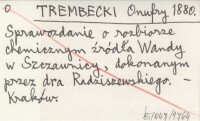 O TREMBECKI Onufry 1880.
Sprawozdanie o rozbiorze
chemicznym źródła Wandy
w Szczawnicy, dokonanym
przez dra Radziszewskiego. –
Kraków.